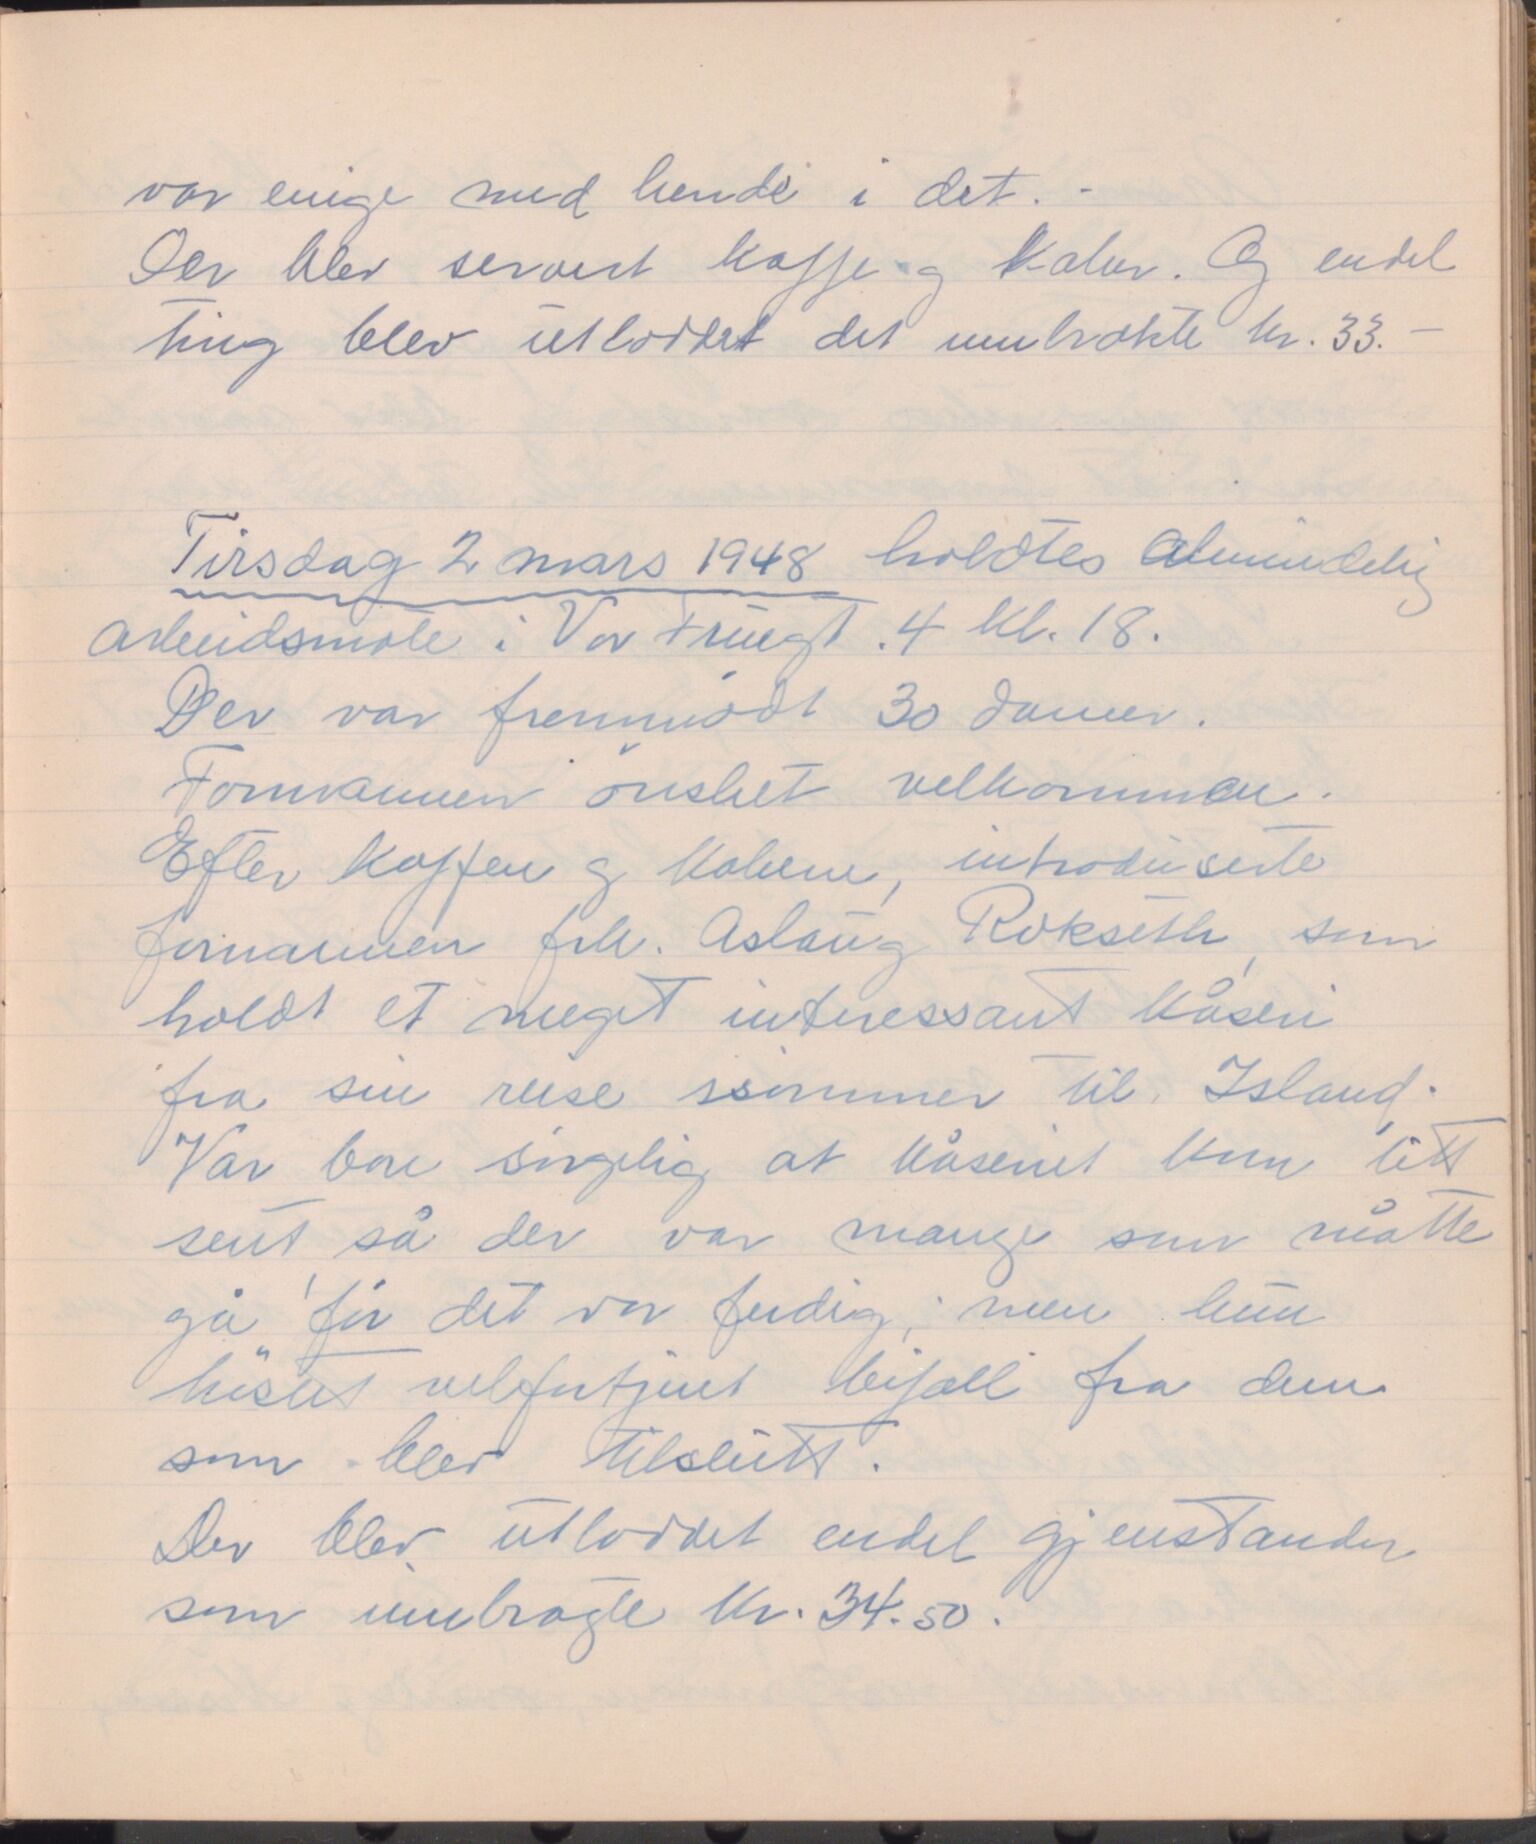 var enige med hende i det. -
Der blev servert kaffe og kaker. Og endel
ting blev utloddet det innbrakte kr. 33.-
Tirsdag 2 mars 1948 holdtes almindelig
arbeidsmøte i Vor Fruegt. 4 kl. 18.
Der var fremmødt 30 damer.
Formannen ønsket velkommen.
Efter kaffen og kakene, introduserte
formannen frk. Aslaug Rokseth, som
holdt et meget interessant kåseri
fra sin reise isommer til Island.
Var bare sørgelig at kåseriet kom litt
sent så der var mange som måtte
gå før det var ferdig, men hun
høstet velfortjent bifall fra dem
som blev tilslutt.
Der blev utloddet endel gjenstander
som innbragte kr. 34.50.